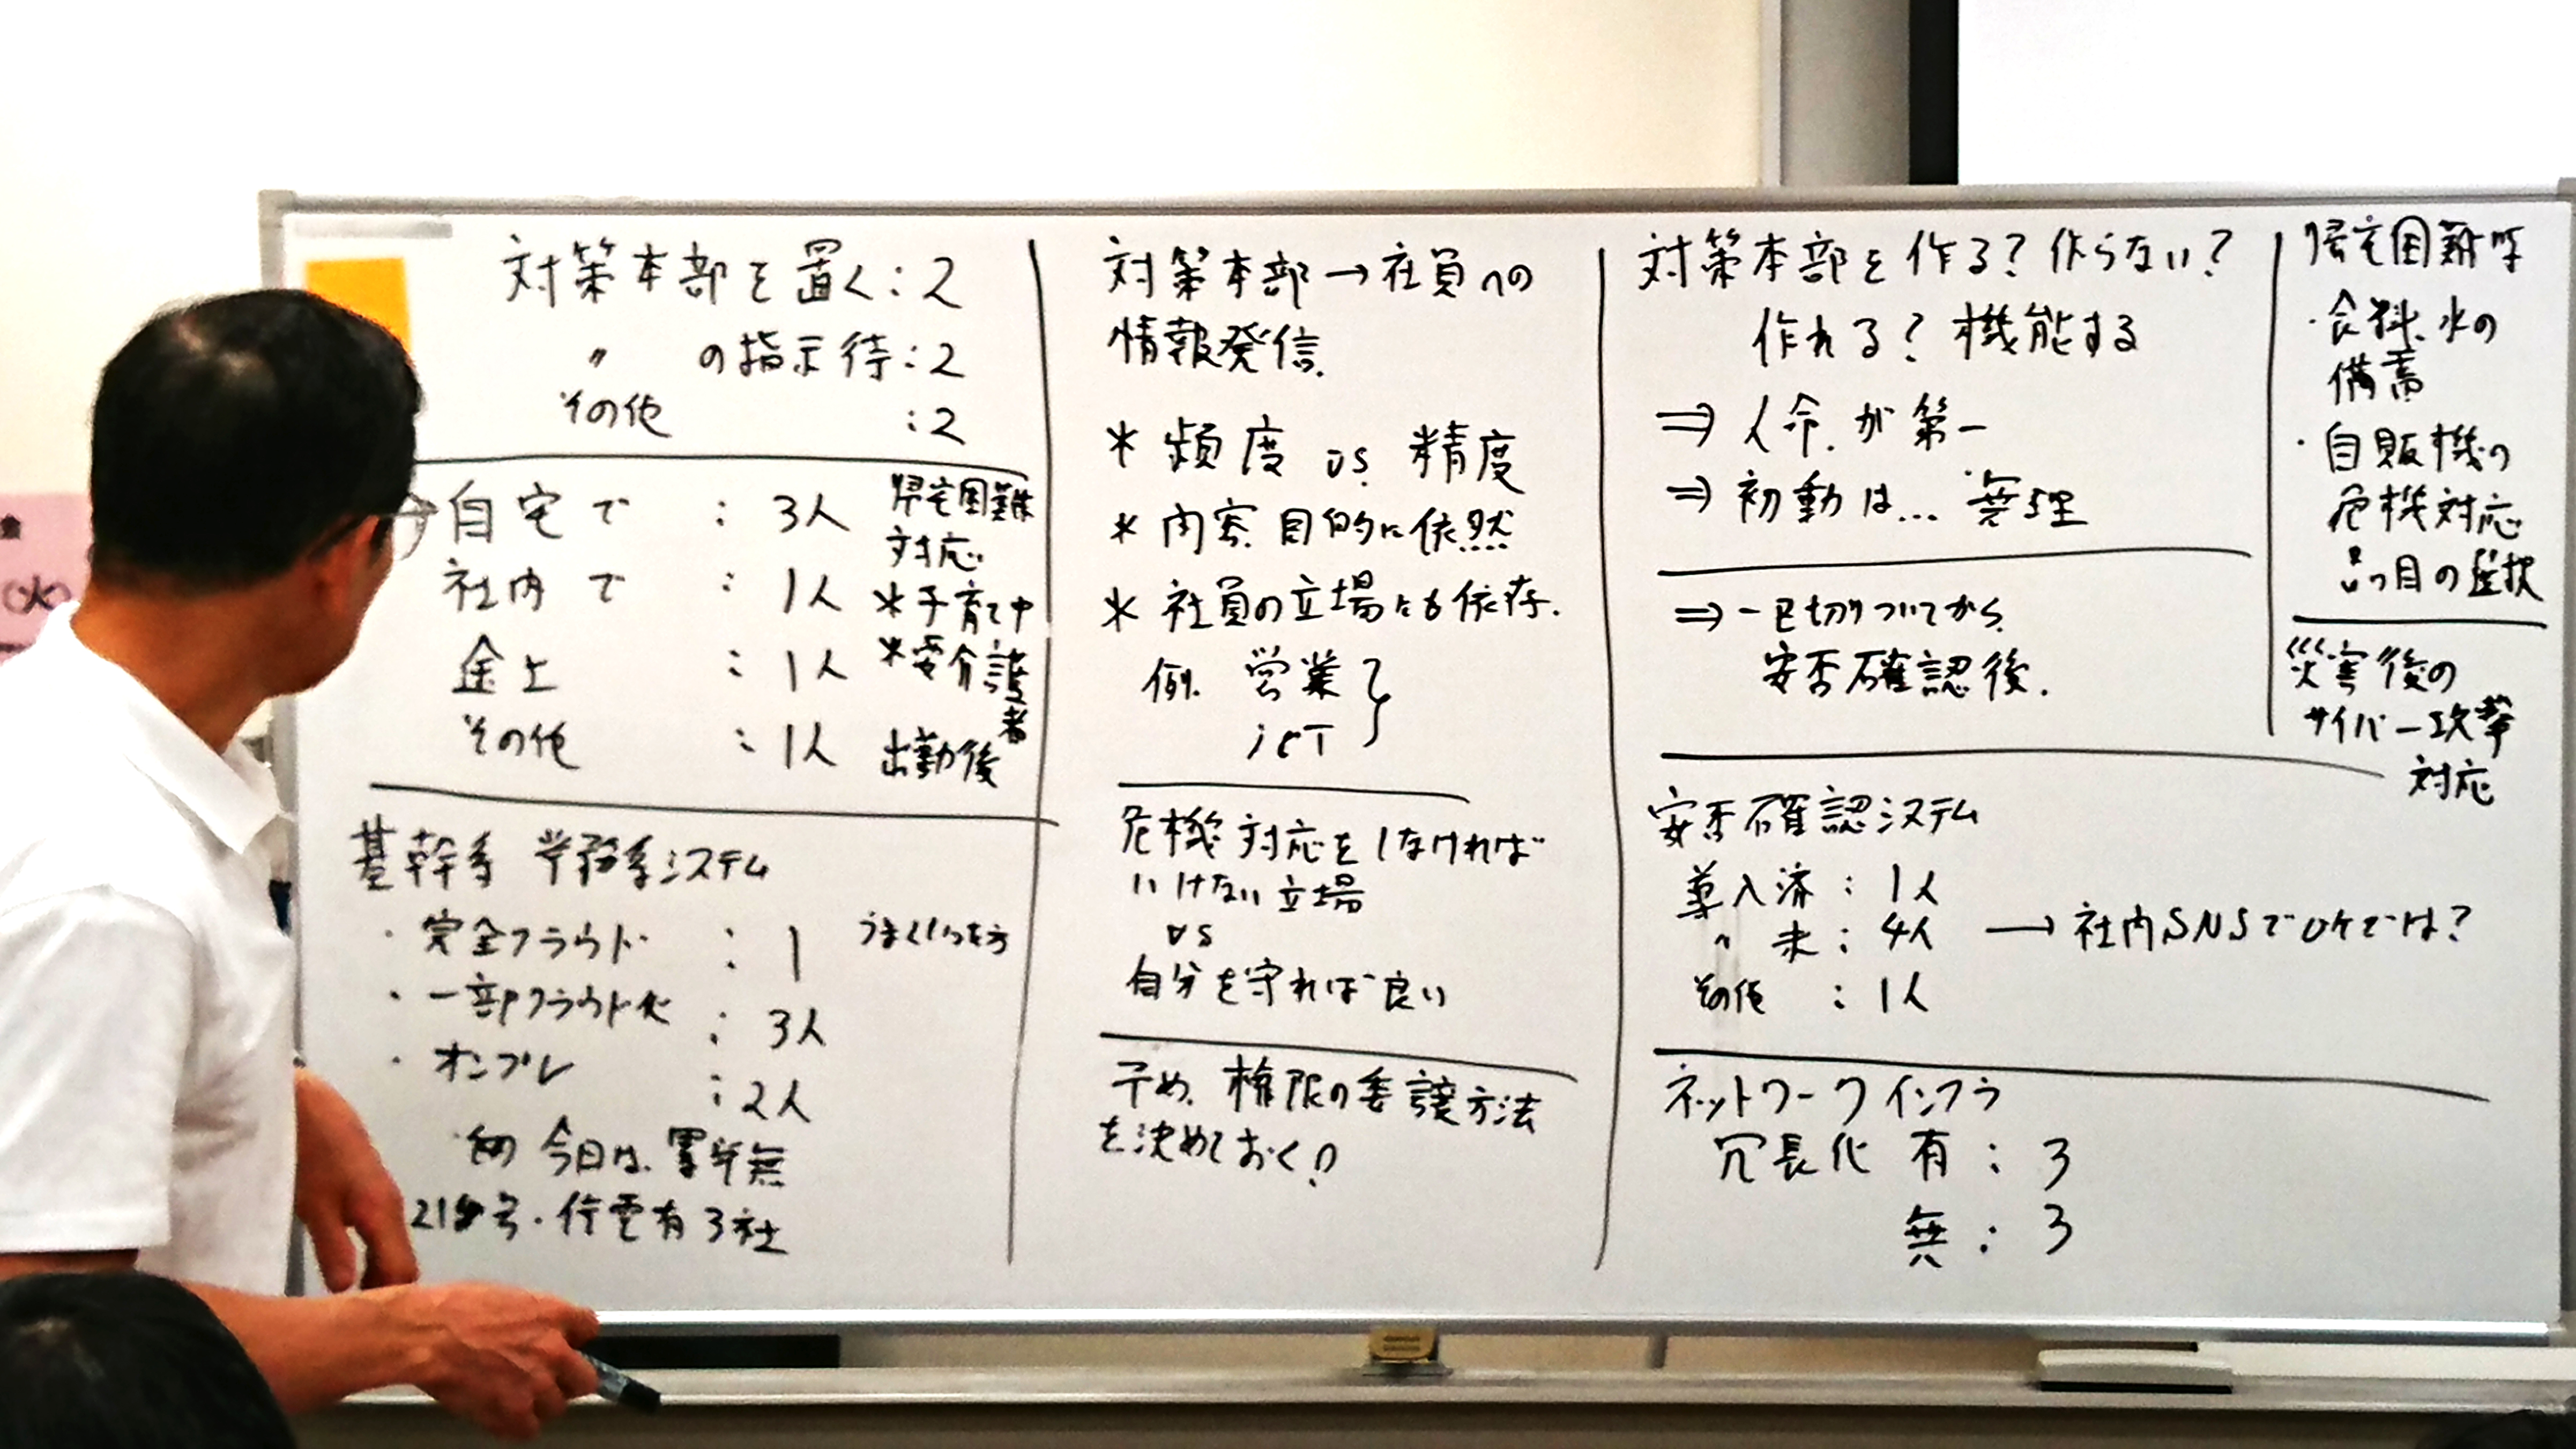 対策本部を置く:2
〃 の指示待:2
その他 :2
自宅で : 3人
社内で : 1人
途上 : 1人
その他 : 1人
帰宅困難
対応
*子育て中
*要介護
者
出勤後
基幹系 業務系システム
・完全クラウド : 1
うまくいった方
・一部クラウド化 : 3人
・オンプレ : 2人
今日は、
号・停電有 3社
対策本部→社員への
情報発信.
* 頻度 vs. 精度
* 内容、目的に依然
* 社員の立場にも依存.
例. 営業
icT
危機対応をしなければ
いけない立場
vs
自分を守れば良い
予め、権限の委譲方法
を決めておく!?
対策本部を作る?作らない?
作れる?機能する
⇒ 人命が第一
⇒ 初動は… 無理
⇒ 一区切りついてから
安否確認後.
安否確認システム
導入済 : 1人
〃 未 : 4人 → 社内SNSでOKでは?
その他 : 1人
ネットワークインフラ
冗長化 有 : 3
無 : 3
帰宅困難時
・食料、水の
備蓄
・自販機の
危機対応
品目の選択
災害後の
サイバー攻撃
対応
(火)